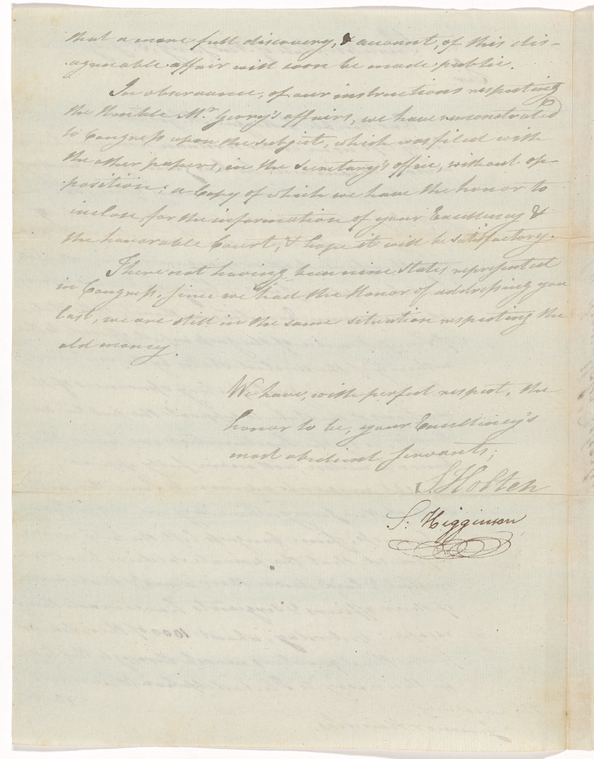 that a more full discovery, & account, of this dis-
agreeable affair will soon be made public.
In observance, of our instructions respecting
the Honble Mr. Gerry's affairs, we have remonstrated
to Congress upon the subject, which was filed with
the other papers, in the Secretary's office, without op-
position; a Copy of which we have the honor to
inclose for the information of your Excellency &
the honorable Court, & hope it will be satisfactory.
There not having been nine States represented
in Congress, since we had the Honor of addressing you
last, we are still in the same situation respecting the
old money.
We have, with perfect respect, the
honor to be, your Excellency's
most obedient servants,
S. Holten
S. Higginson